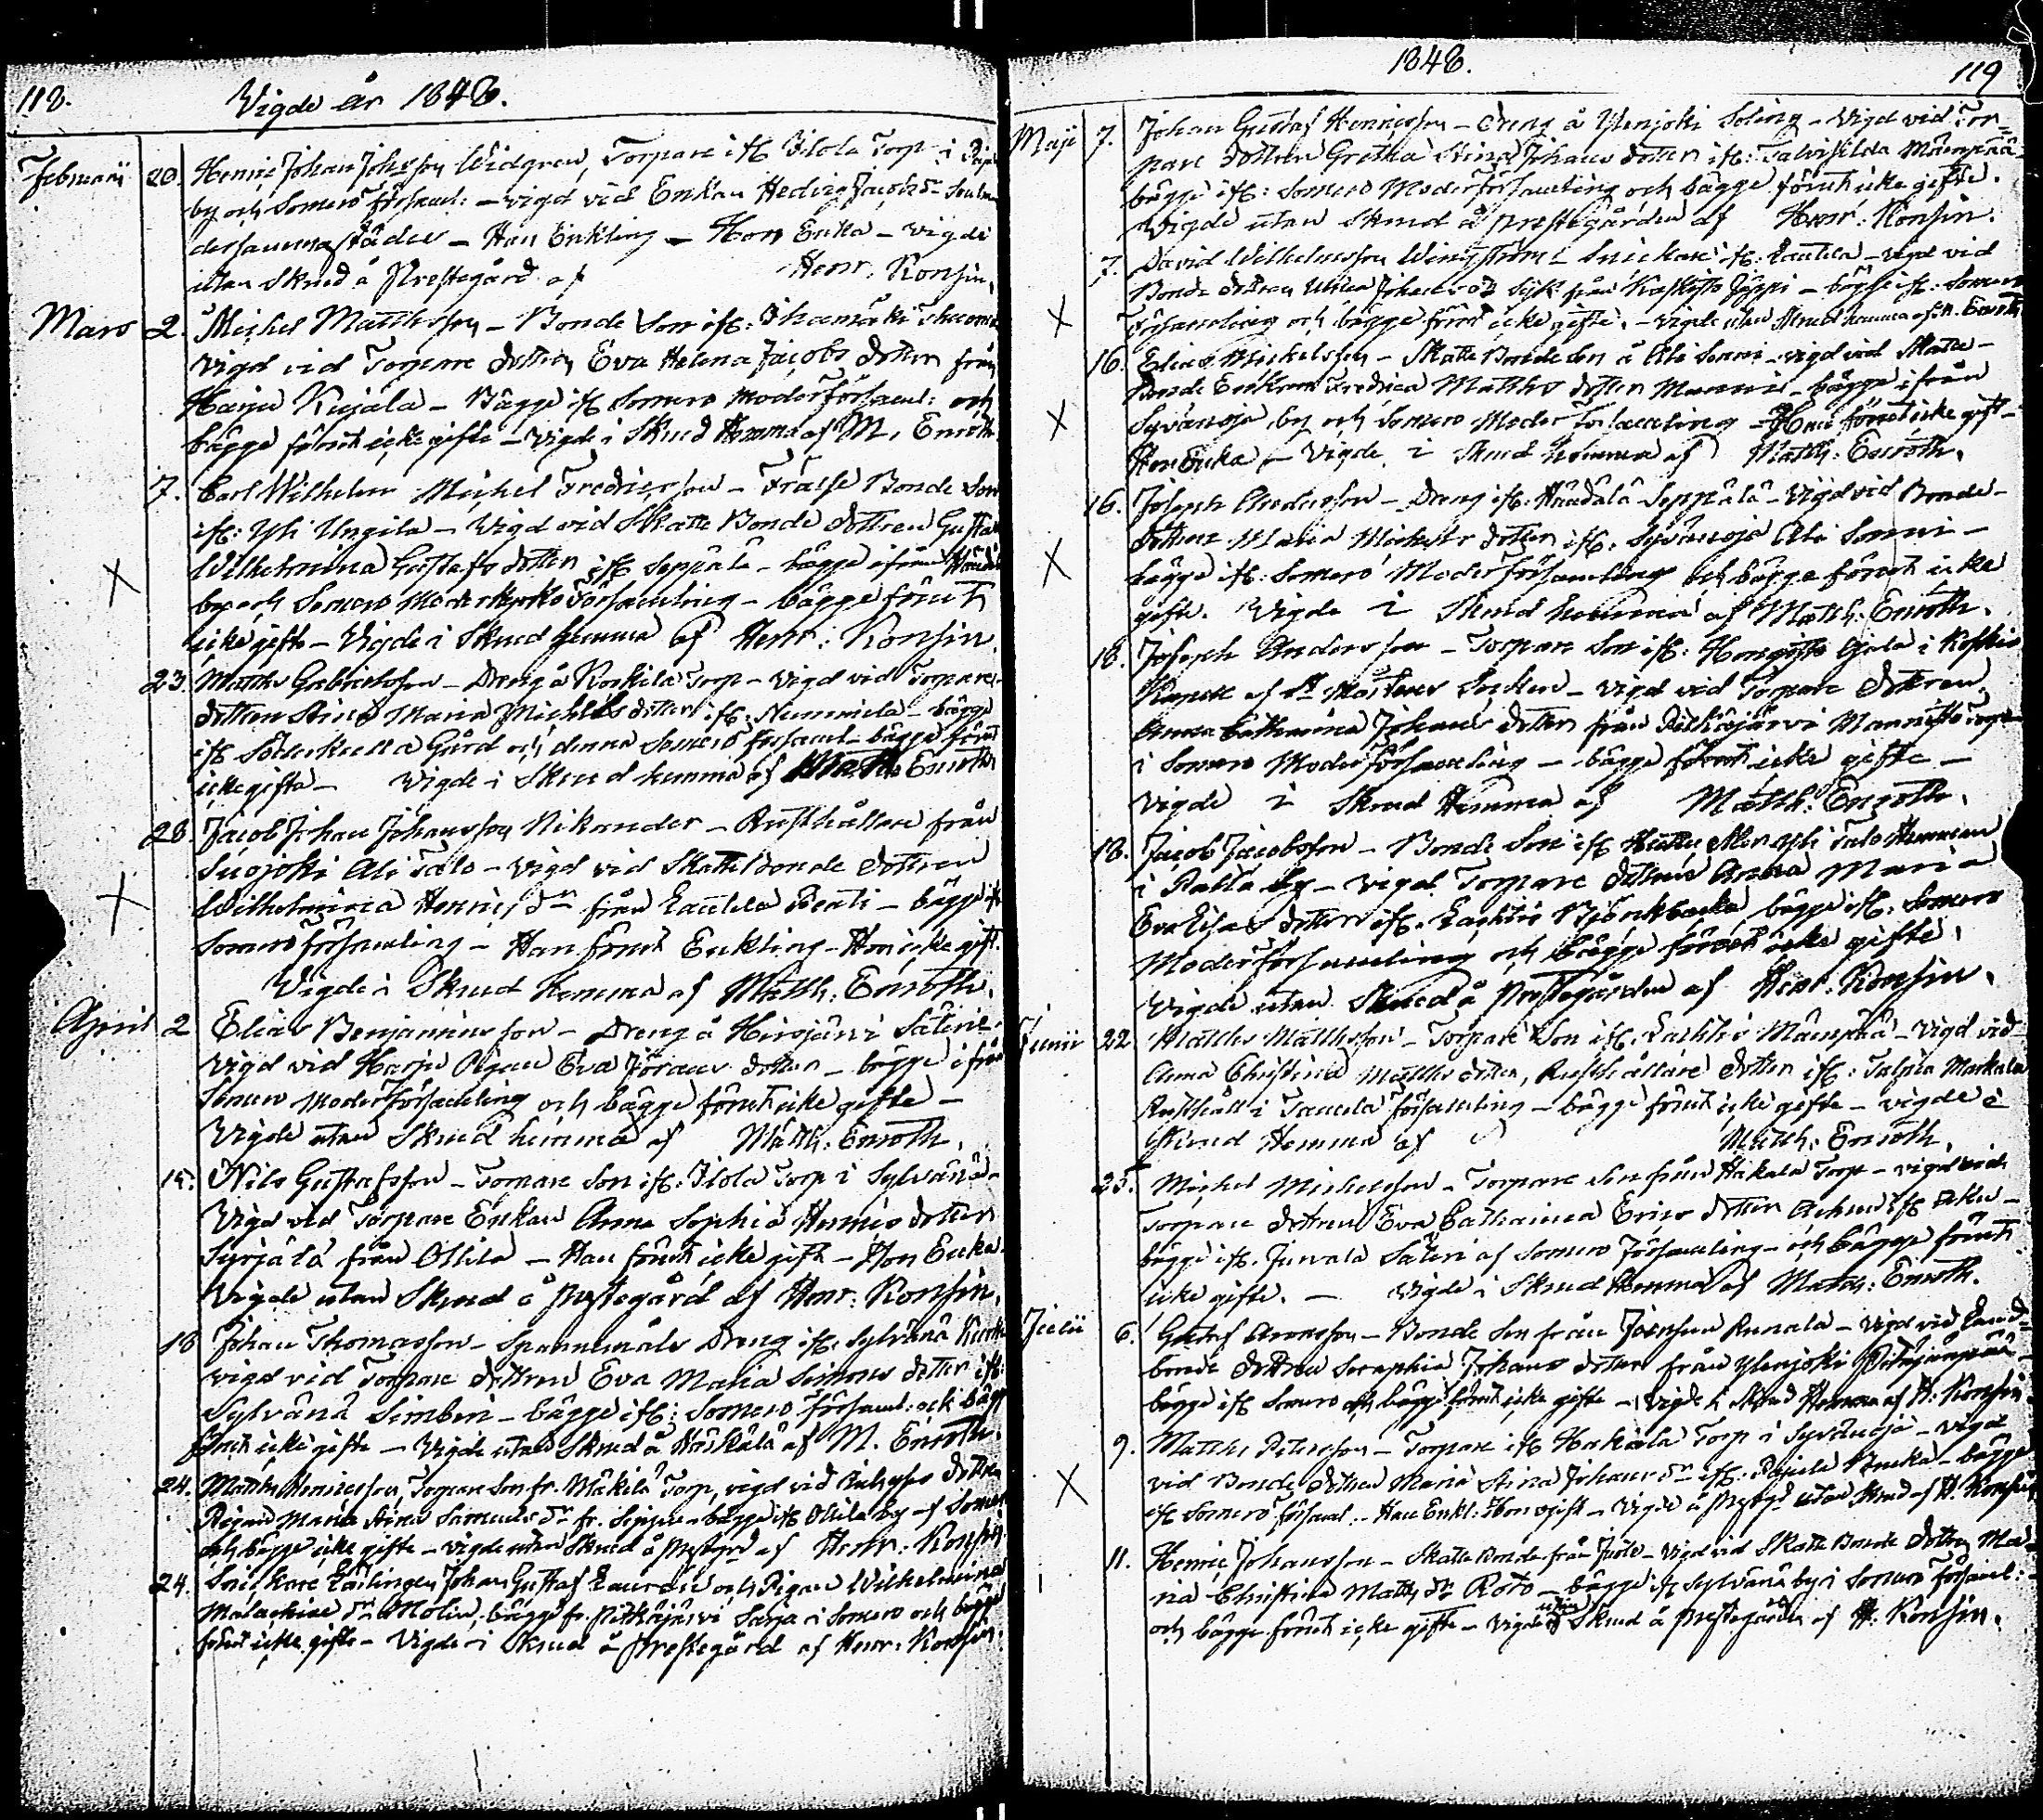 118.
Vigde år 1848.
Februarii 20. Henric Johan Johsson Widgren, Torpare ifr. Ilola Torp i
by och Somero församl: – vigd vid Enkan Hedvig Jacobs
dersamma städes – Han Enkling – Hon Enka – vigde
utan Skrud å Prestegård af Henr. Konsin.
Mars 2. Michel Matthsson – Bonde Son ifr:
vigd vid Torpare dottren Eva Helena Jacobs dotter från
Harju Kujala – Bägge ifr Somero Moderförsaml: och
bägge förut icke gifte – vigde i Skrud Hemma af M. Enroth
7. Carl Wilhelm Michel Fredricsson – Frälse Bonde Son
ifr: Yli Ungila – Vigd vid Skatte Bonde dottren Gustava
Wilhelmina Gustafs dotter ifr Seppälä – bägge ifrån
by och Somero Moderkyrko Församling – bägge förut
icke gifte – Vigde i Skrud hemma af Henr: Konsin.
23. Matths Gabrielsson – Dreng å Koskila Torp – Vigd vid Torpare
dottren Stina Maria Michels dotter ifr: Nummela – bägge
ifr Söderkulla Gård och denna Somero Församl – bägge förut
icke gifte – Vigde i Skrud hemma af Matths Enroth
28. Jacob Johan Johansson Nikander – Rusthållare från
Suojoki Ali Talo – Vigd vid Skatte Bonde dottren
Wilhelmina Henrics dr från Lautela Perti – bägge ifr
Somero församling – Han förut Enkling – Hon icke gift.
Vigde i Skrud Hemma af Matth: Enroth.
April 2 Elias Benjaminsson – Dreng å Hirsjärvi Säteri
Vigd vid Harju Pigan Eva Görans dotter – bägge ifrån
Somero Moderförsamling och bägge förut icke gifte –
Vigde utan Skrud hemma af Matth: Enroth.
Nils Gustafsson – Torpare Son ifr: Ilola Torp i Sylvänä –
Vigd vid Torpare Enkan Anna Sophia Henrics dotter
Syrjälä från Ollila – Han förut icke gift – Hon Enka.
Vigde utan Skrud å Prestegård af Henr: Konsin.
18 Johan Thomasson – Spannemåls Dreng ifr. Sylvänä
vigd vid Torpare dottren Eva Maria Simons dotter ifr:
Sylvänä Simberi – bägge ifr: Somero Församl: och bägge
förut icke gifte – Vigde utan Skrud å Härkälä af M. Enroth.
24. Matths Henricsson, Torpare Son fr. Mäkilä Torp, vigd vid
Pigan Maria Stina Samuels dr fr. – bägge ifr Ollila by af Somero
och bägge icke gifte – vigde utan Skrud å Prestgd af Henr: Konsin.
24. Snickare Lärlingen Johan Gustaf Laurén och Pigan Wilhelmina
Malachiae dr Molin, bägge fr. Pitkäjärvi i Somero och bägge
förut icke gifte – Vigde i Skrud å Prestegård af Henr: Konsin.
1848.
119
Maji 7. Johan Gustaf Henricsson – Dreng å Ylenjoki Soling – Vigd vid Tor=
pare dottren Gretha Stina Johans dotter ifr: Talvisilda Mäenpää –
bägge ifr: Somero Moderförsamling och bägge förut icke gifte.
Vigde utan Skrud å Prestegården af Henr: Konsin.
7. David Wilhelmsson Wingström Snickare ifr: Lautela – vigd vid
Bonde dottren Ulrica Johans dr från Kaskisto Jäppi – bägge ifr: Somero
Församling och bägge förut icke gifte. – Vigde utan Skrud hemma af M. Enroth
16. Elias Mickelsson – Skatte Bonde Son å Ali Sonni – vigd vid Skatte –
Bonde Enkan Fredrica Matths dotter – bägge ifrån
Syvänoja by och Somero Moder Församling – Han förut icke gift –
Hon Enka – Vigde i Skrud hemma af Matth: Enroth.
16. Joseph Andersson – Dreng ifr. Häntälä Seppälä – Vigd vid Bonde –
dottren Maria Mickels dotter ifr. Syvänoja Ali Sonni –
bägge ifr: Somero Moderförsamling och bägge förut icke
gifte. Vigde i Skrud hemma af Matth: Enroth.
18. Joseph Andersson – Torpare Son ifr: Hongisto i Koskis
Kapell af St Mårtens Socken – vigd vid Torpare dottren
Anna Catharina Johans dotter från Pitkäjärvi Mannisto Torp
i Somero Moderförsamling – bägge förut icke gifte –
Vigde i Skrud Hemma af Matth: Enroth.
18. Jacob Jacobsson – Bonde Son ifr Yli Talo
i Palta by – vigd Torpare dottren Anna Maria
dotter ifr. Lachtis Björkbacka bägge ifr: Somero
Moderförsamling och bägge förut icke gifte.
Vigde utan Skrud å Prestegården af Henr: Konsin.
Junii 22 Matths Matthsson – Torpare Son ifr. Lachtis Mäenpää – Vigd vid
Anna Christina Matths dotter, Rusthållare dotter ifr: Talpia Markula
Rusthåll i Tamela församling – bägge förut icke gifte – vigde i
Skrud Hemma af Matth: Enroth.
25. Michel Mickelsson – Torpare Son från Hakala Torp – vigd vid
Torpare dottren Eva Catharina Erics dotter
bägge ifr. Jurvala Säteri af Somero Församling – och bägge förut
icke gifte. – Vigde i Skrud Hemma af Matth: Enroth.
Julii 6. Gustaf Aronsson – Bonde Son från Joensuu – Vigd vid Land=
bonde dottren Seraphia Johans dotter från Ylenjoki
bägge ifr Somero och bägge förut icke gifte – Vigde i Skrud Hemma af H: Konsin.
9. Matths Petersson – Torpare ifr Hakala Torp i Syvänoja – vigd
vid Bonde dottren Maria Stina Johans dr ifr: – bägge
ifr Somero församl. – Han Enkl: Hon ogift – Vigde å Prestgd utan Skrud af H. Konsin
11. Henric Johansson – Skatte Bonde från – Vigd vid Skatte Bonde dottren Ma=
ria Christina Matths dr – bägge ifr Sylvänä by i Somero församl: –
och bägge förut icke gifte – Vigde utan Skrud å Prestegården af H: Konsin.